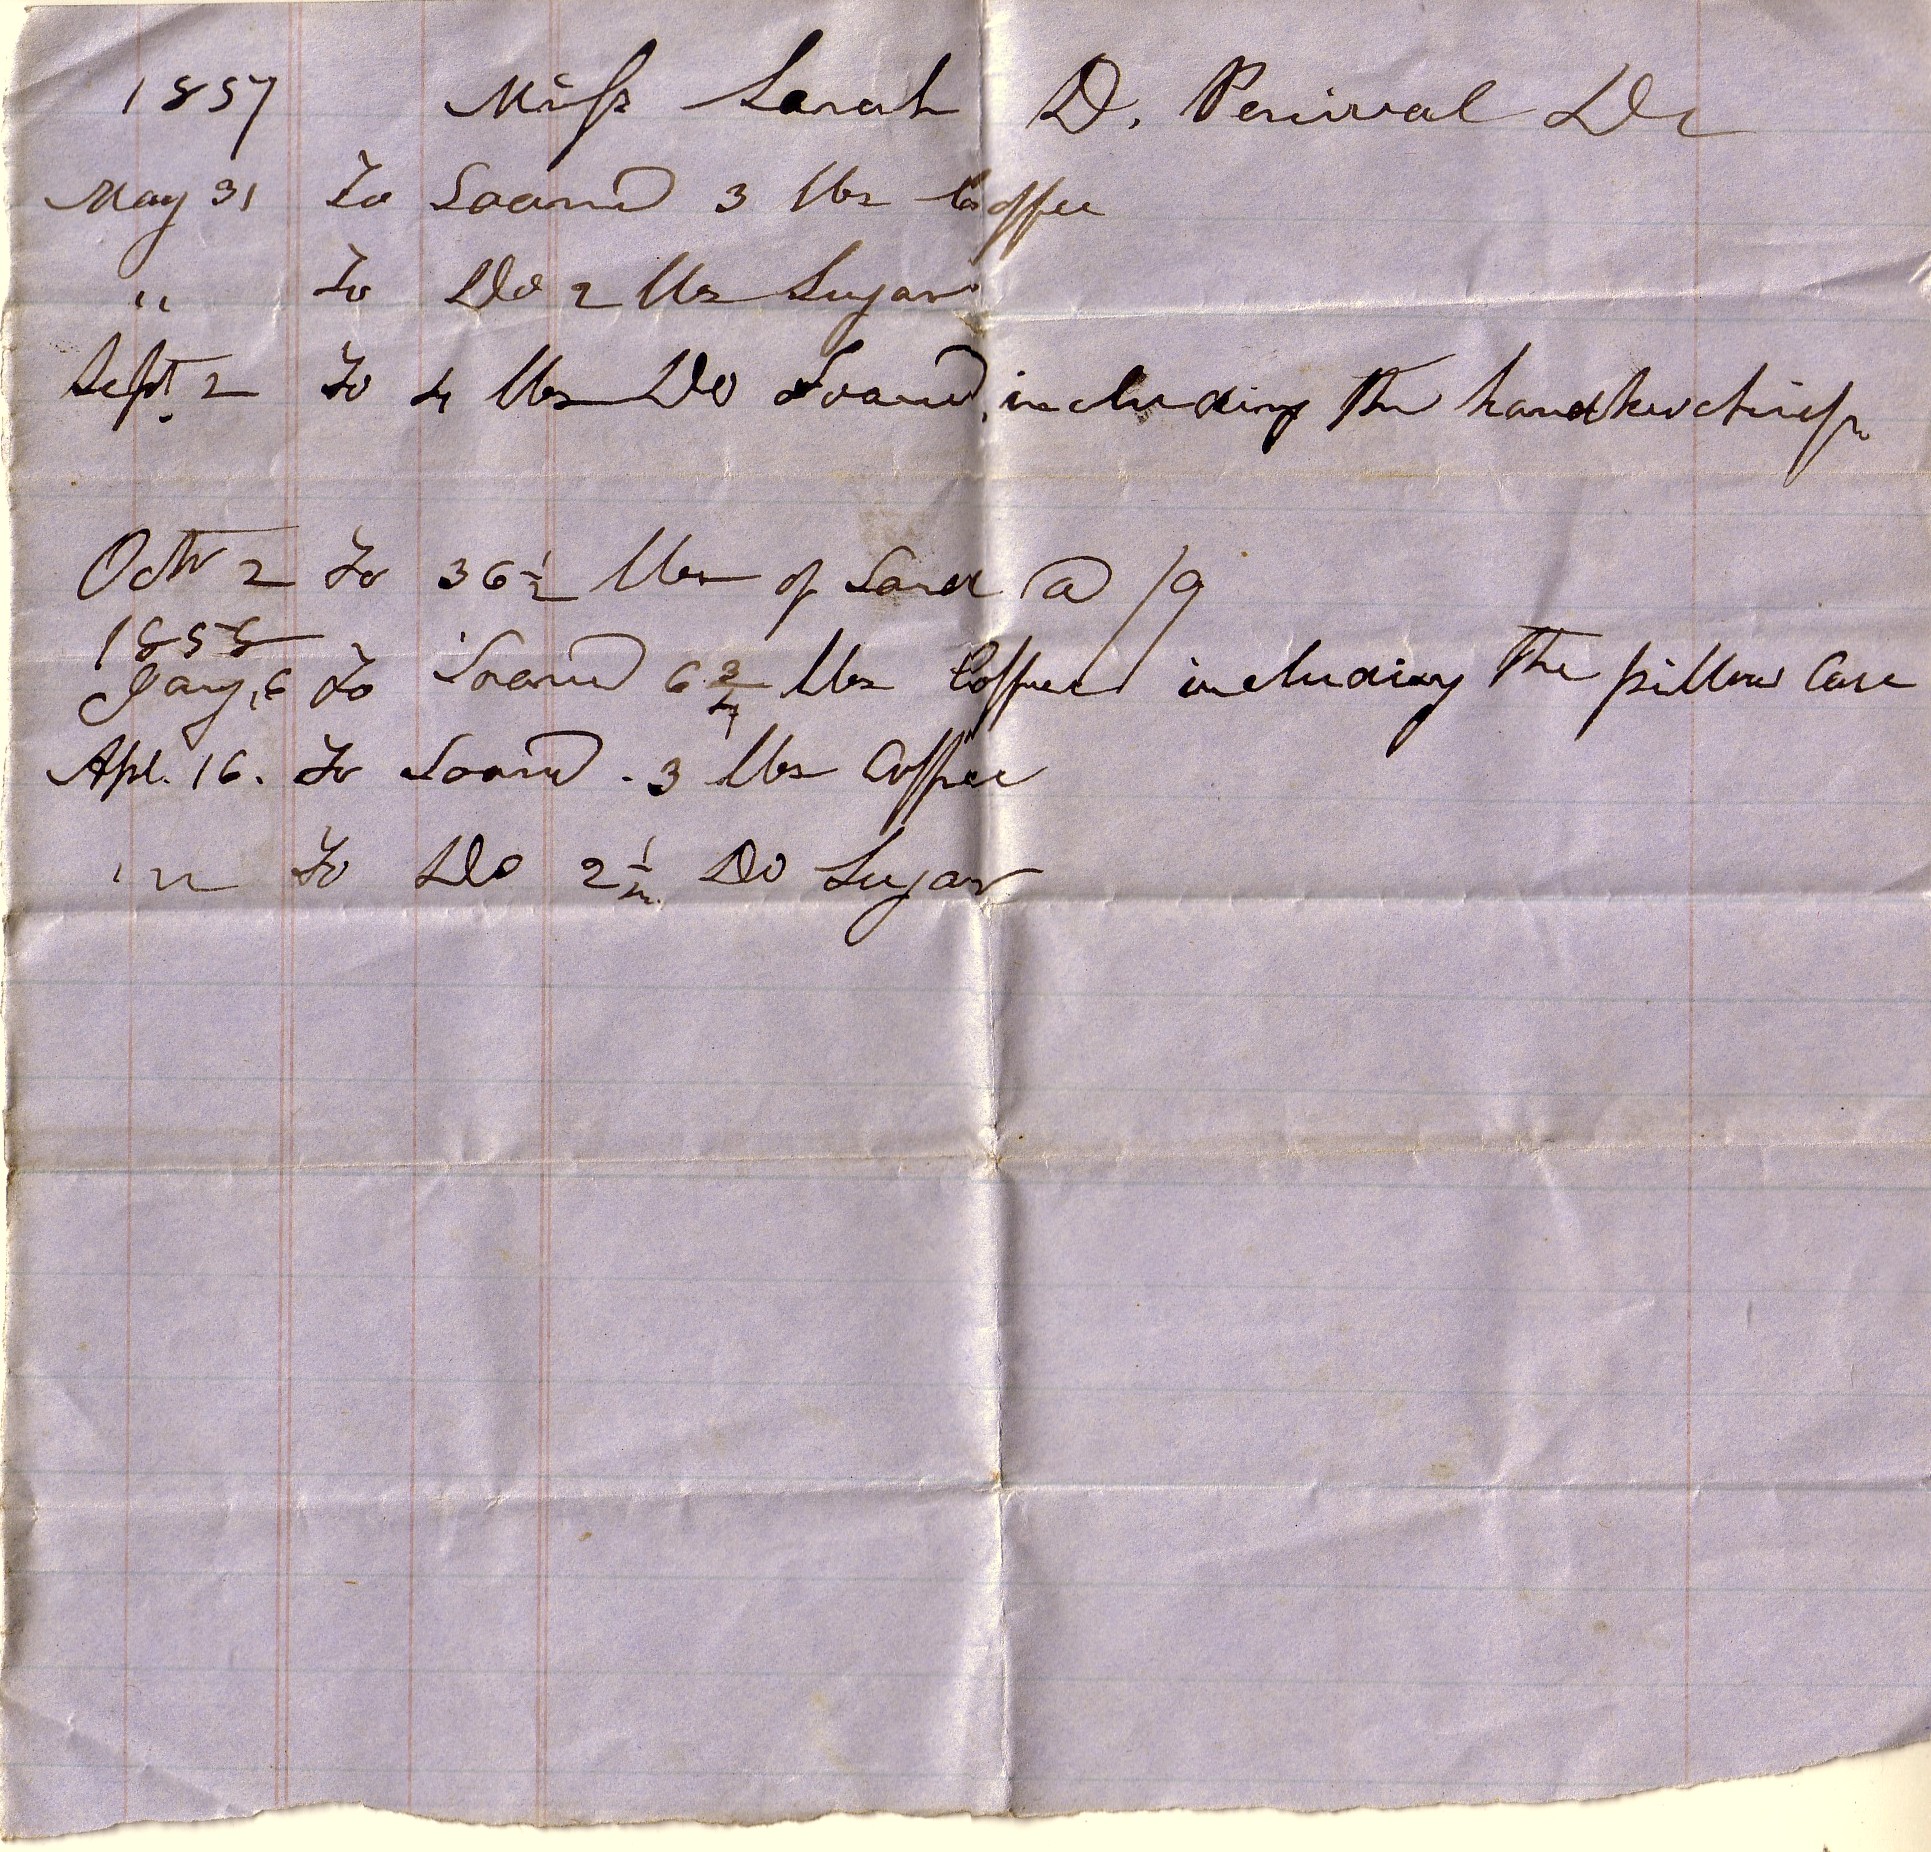 1857 Miss Sarah D. Percival Dr
May 31 To Loand 3 lbs Coffee
" To Do 2 lbs Sugar
Sept. 2 To 4 lbs Do Loand, including the handkerchief
Octr 2 To 36½ lbs of Lard @ /9
1858
Jany, 6 To Loand 6¾ lbs Coffee including the pillow Case
Apl. 16. To Loand. 3 lbs Coffee
" To Do 2½ Do Sugar